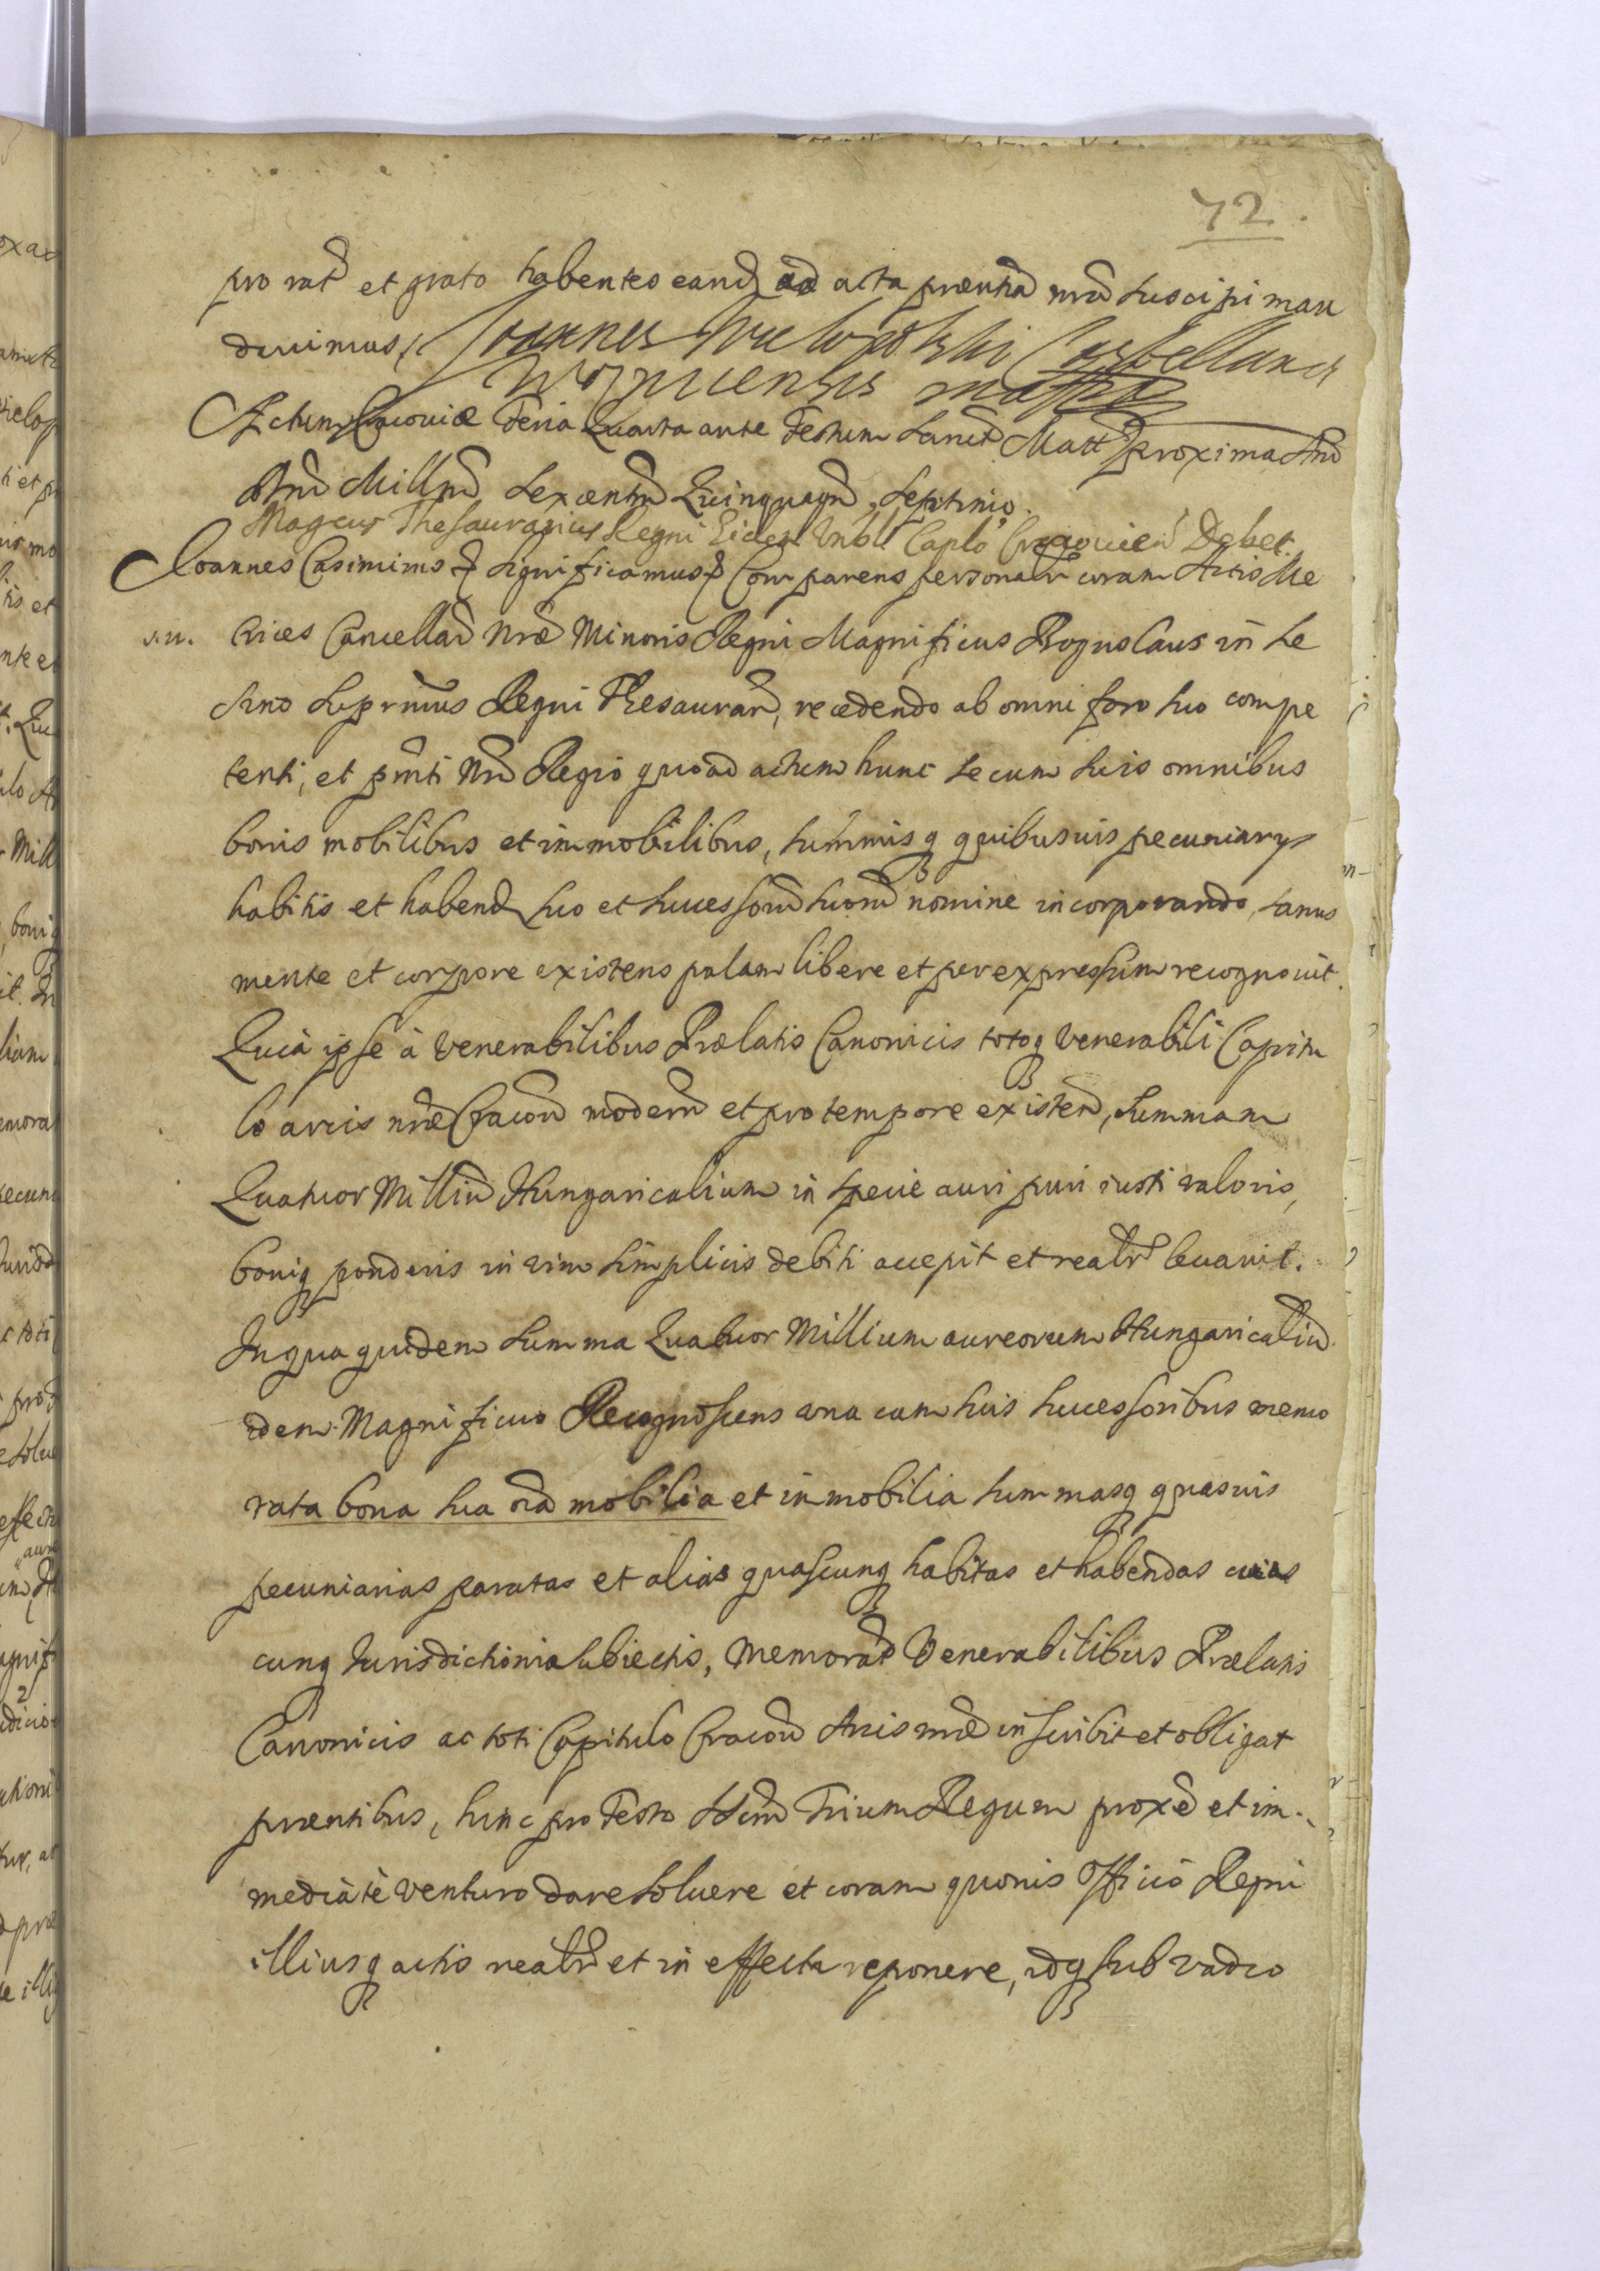 72.
pro rat et grato habentes eand ad acta præntia nra suscipi man
davimus, Joannes Wielopolski Castellanus
Woynicensis mpp
Actum Cracoviæ Feria Quarta ante Festum Sancti Matt proxima Ano
Dni Millmo Sexcentmo Quinquagmo Septimo.
Magcus Thesaurarius Regni Eidem Vnbli Caplo Cracouien Debet.
Joannes Casimirus & significamus & Comparens personalr coram Actis Me
v.n. trices Cancellar Nræ Minoris Regni Magnificus Boguslaus in Le
sno Supremus Regni Thesaurar, recedendo ab omni foro suo compe
tenti, et pnti Nro Regio quoad actum hunc se cum suis omnibus
bonis mobilibus et immobilibus, summisq quibusuis pecuniarys
habitis et habend suo et successorum suorum nomine incorporando, sanus
mente et corpore existens palam libere et per expressum recognouit.
Quia ipse à Venerabilibus Prælatis Canonicis totoq Venerabili Capitu
lo arcis nræ Cracou modern et pro tempore existen, summam
Quatuor Milliu Hungaricalium in specie auri puri iusti valoris,
boniq ponderis in vim simplicis debiti accepit et realr leuauit.
In qua quidem summa Quatuor Millium aureorum Hungaricaliu
idem Magnificus Recognoscens vna cum suis successoribus memo
rata bona sua oia mobilia et immobilia summasq quasuis
pecuniarias paratas et alias quascunq habitas et habendas cuius
cunq Jurisdictioni subiectis, memorat Venerabilibus Prælatis
Canonicis ac toti Capitulo Cracou Arcis nræ inscribit et obligat
præntibus, hinc pro Festo SSum Trium Regum proxe et im-
mediatè venturo dare soluere et coram quouis Officio Regni
illiusq actis realr et in effectu reponere, idq sub vadio